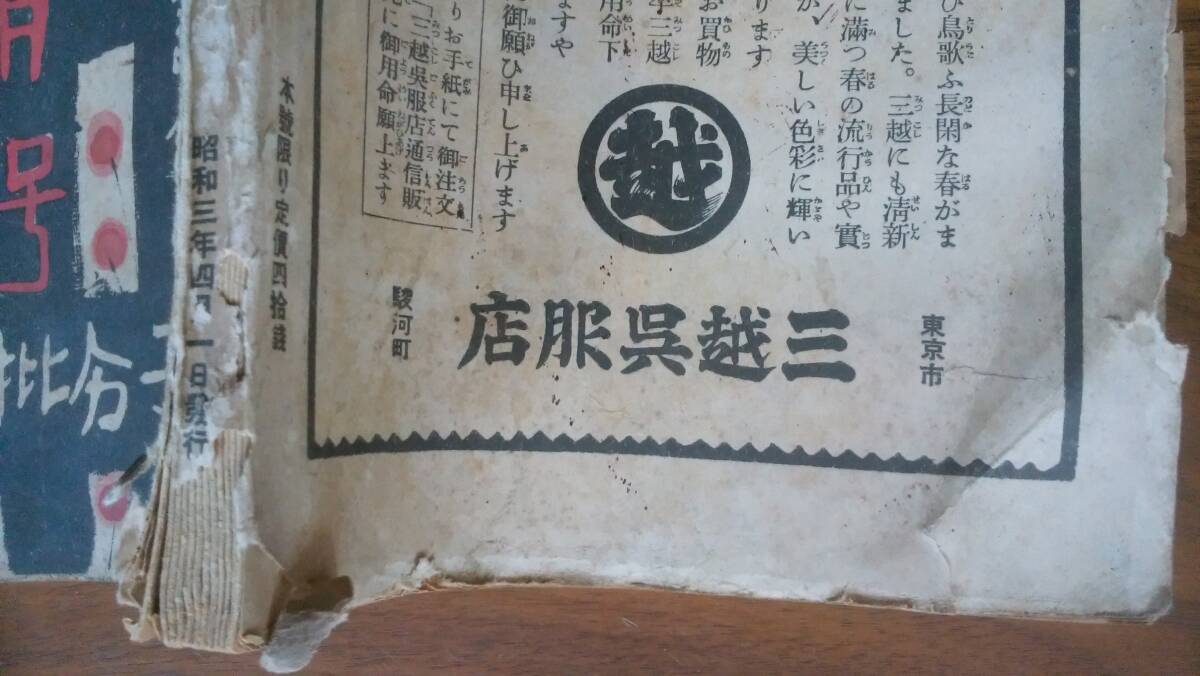 び鳥歌ふ長閑な春がま
ました。三越にも清新
に満つ春の流行品や實
か、美しい色彩に輝い
ります
お買物
三越
用命下
ますや
御願ひ申し上げます
りお手紙にて御注文
「三越呉服店通信販
に御用命願上ます
越
東京市
三越呉服店
駿河町
本號限り定價四拾錢
昭和三年四月一日發行
号
批